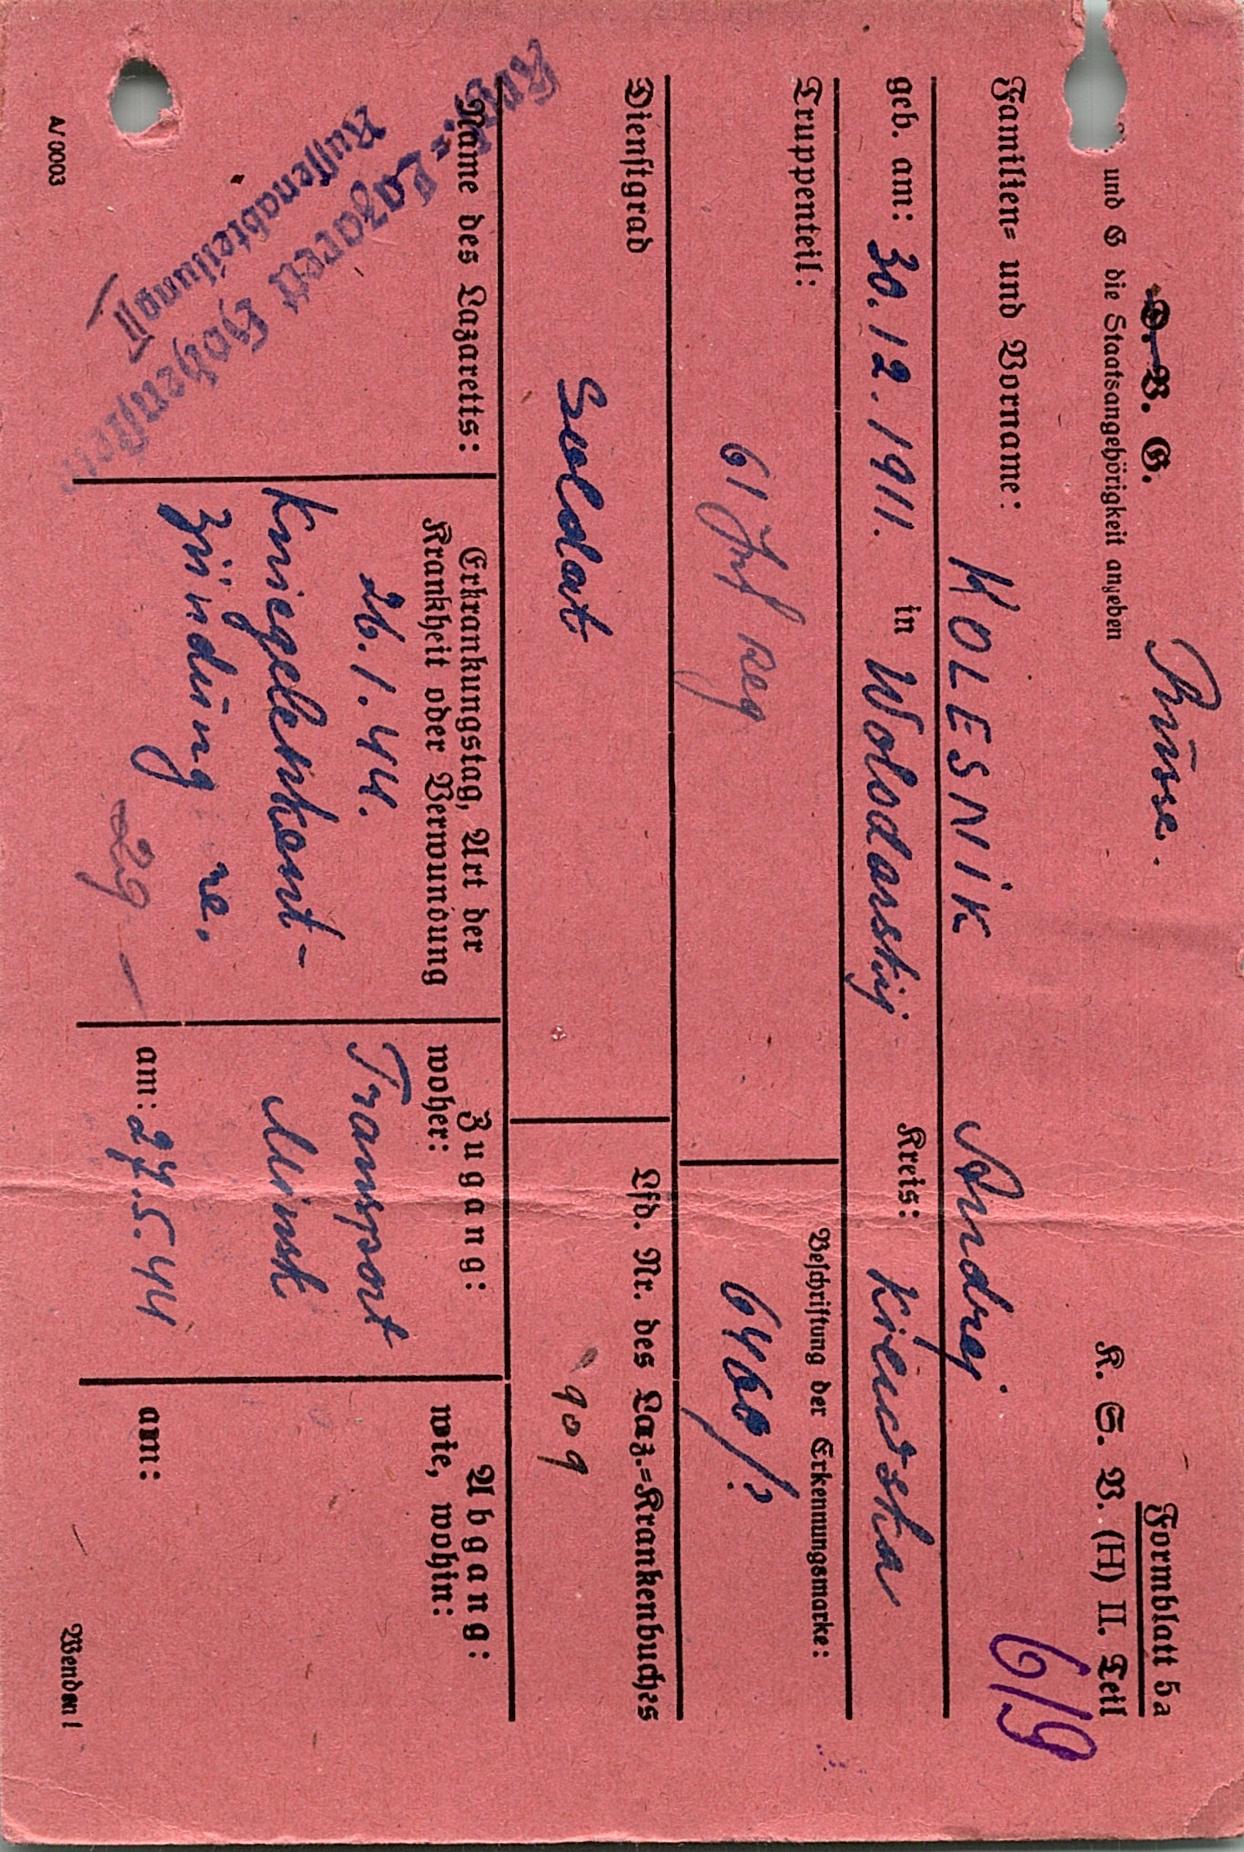 D. V. G. Russe.
und G die Staatsangehörigkeit angeben
Formblatt 5a
K. S. V. (H) II. Teil
6/9
Familien- und Vorname: KOLESNIK Andrej
geb. am: 30.12.1911. in Wolodarskij Kreis: Kiewska
Truppenteil: 61 Inf Reg
Beschriftung der Erkennungsmarke:
Dienstgrad Soldat
Lfd. Nr. des Laz.-Krankenbuches
909
Name des Lazaretts:
Lazarett Hohenstein
Russenabteilung II
Erkrankungstag, Art der
Krankheit oder Verwundung
26.1.44.
Kniegelenkent-
zündung re.
29
Zugang:
woher:
Transport
Minsk
am: 27.5.44
Abgang:
wie, wohin:
am:
A/ 0003
Wenden!